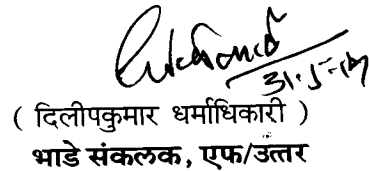 31.5.17
( दिलीपकुमार धर्माधिकारी )
भाडे संकलक, एफ/उत्तर